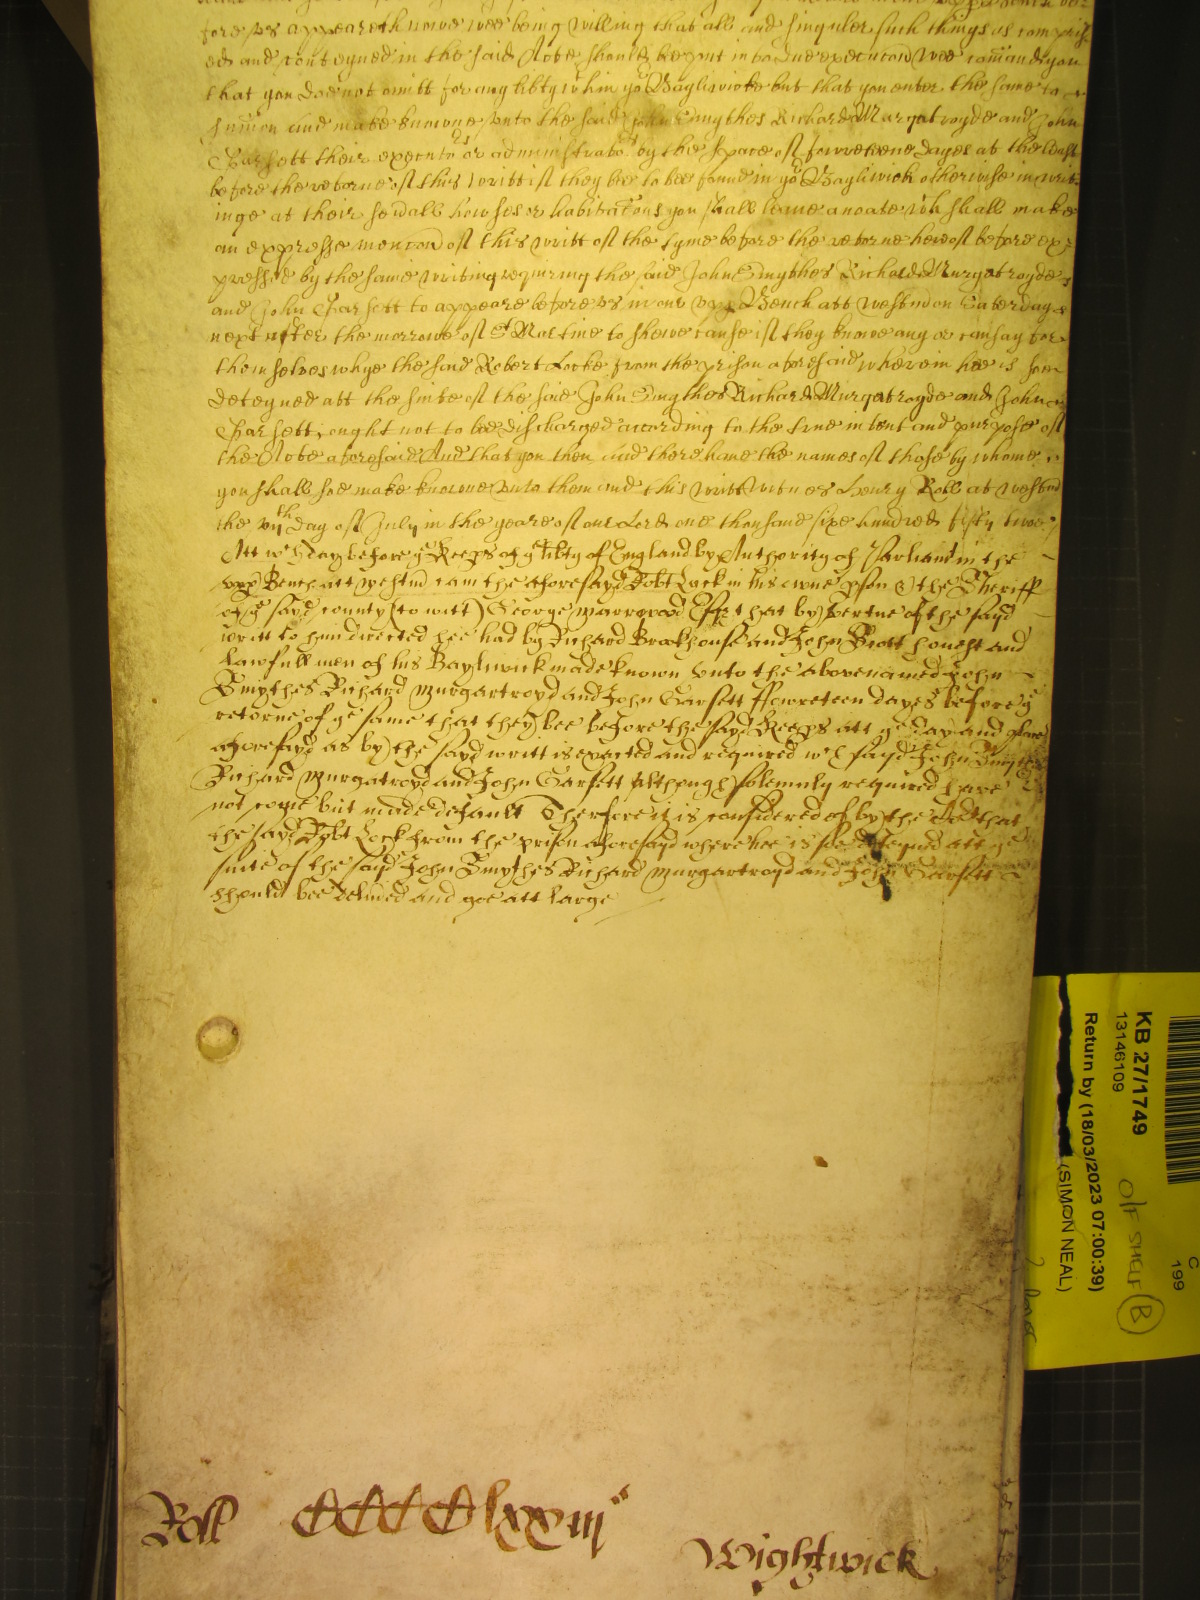 fore us appeareth nowe wee being willing that all and singuler such things as compris
ed and conteyned in the said Acte should be put into due execucon wee comaund you
that you doe not omitt for any libtye within yor Bayliwicke but that you enter the same to
sumon and make knowne unto the said John Smythes Richard Murgatroyde and John
Garsett their executors or administrators by the space of fowreteene dayes at the least
before the retorne of this writt if they bee to bee found in yor Bayliwick otherwise in writ
inge at their severall howses or habitacons you shall leave a noate wch shall make
an expresse mencon of this writt of the tyme before the retorne hereof before ex
pressed by the same writing requiring the said John Smythes Richard Murgatroyde
and John Garsett to appeare before us in our upp Bench att Westmr on Saterday
next after the morrowe of St Martine to shewe cause if they knowe any or can say for
themselves whye the said Robert Locke from the prison aforesaid wherein hee is soe
deteyned att the suite of the said John Smythes Richard Murgatroyde and John
Garsett ought not to bee discharged according to the true intent and purpose of
the Acte aforesaid And that you then and there have the names of those by whome
you shall soe make knowne unto them and this writt witnes Henry Roll at Westmr
the day of July in the yeare of our Lord one thousand sixe hundred fifty twoe
Att wch day before ye Keeps of ye libty of England by Authority of Parliamt in the
upp Bench att Westmr came the aforesayd Robt Lock in his owne pson & the Sheriff
of ye sayd county (to witt) George Esqr that by vertue of the sayd
writt to him directed hee had by Richard Brookhouse and John Scott honest and
lawfull men of his Bayliwick made known unto the abovenamed John
Smythes Richard Murgartroyd and John Garsett ffowreteen dayes before ye
retorne of ye same that they bee before the sayd Keeps att ye day and place
aforesayd as by the sayd writt is exacted and required wch sayd John Smythes
Richard Murgatroyd and John Garsett Although solemnly required have
not come but made default Therfore it is considered of by the Court that
the sayd Robt Lock from the prison aforesayd where hee is soe deteyned att ye
suite of the sayd John Smythes Richard Murgartroyd and John Garsett
should bee delivred and goe att large
Roll CCCClxxiij
Wightwick
KB 27/1749
13146109
Return by (18/03/2023 07:00:39)
(SIMON NEAL)
O/F SHELF B
C
199